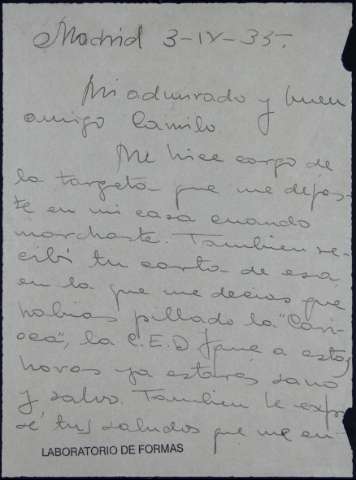 Madrid 3-IV-35.
Mi admirado y buen
amigo Camilo.
Me hice cargo de
la targeta que me dejas-
te en mi casa cuando
marchaste. Tambien re-
cibí tu carta de esa
en la que me decias que
habias pillado la "Cari-
oca", la C.E.D que a estas
horas ya estarás sano
y salvo. Tambien le expre-
sé tus saludos que me en-
LABORATORIO DE FORMAS